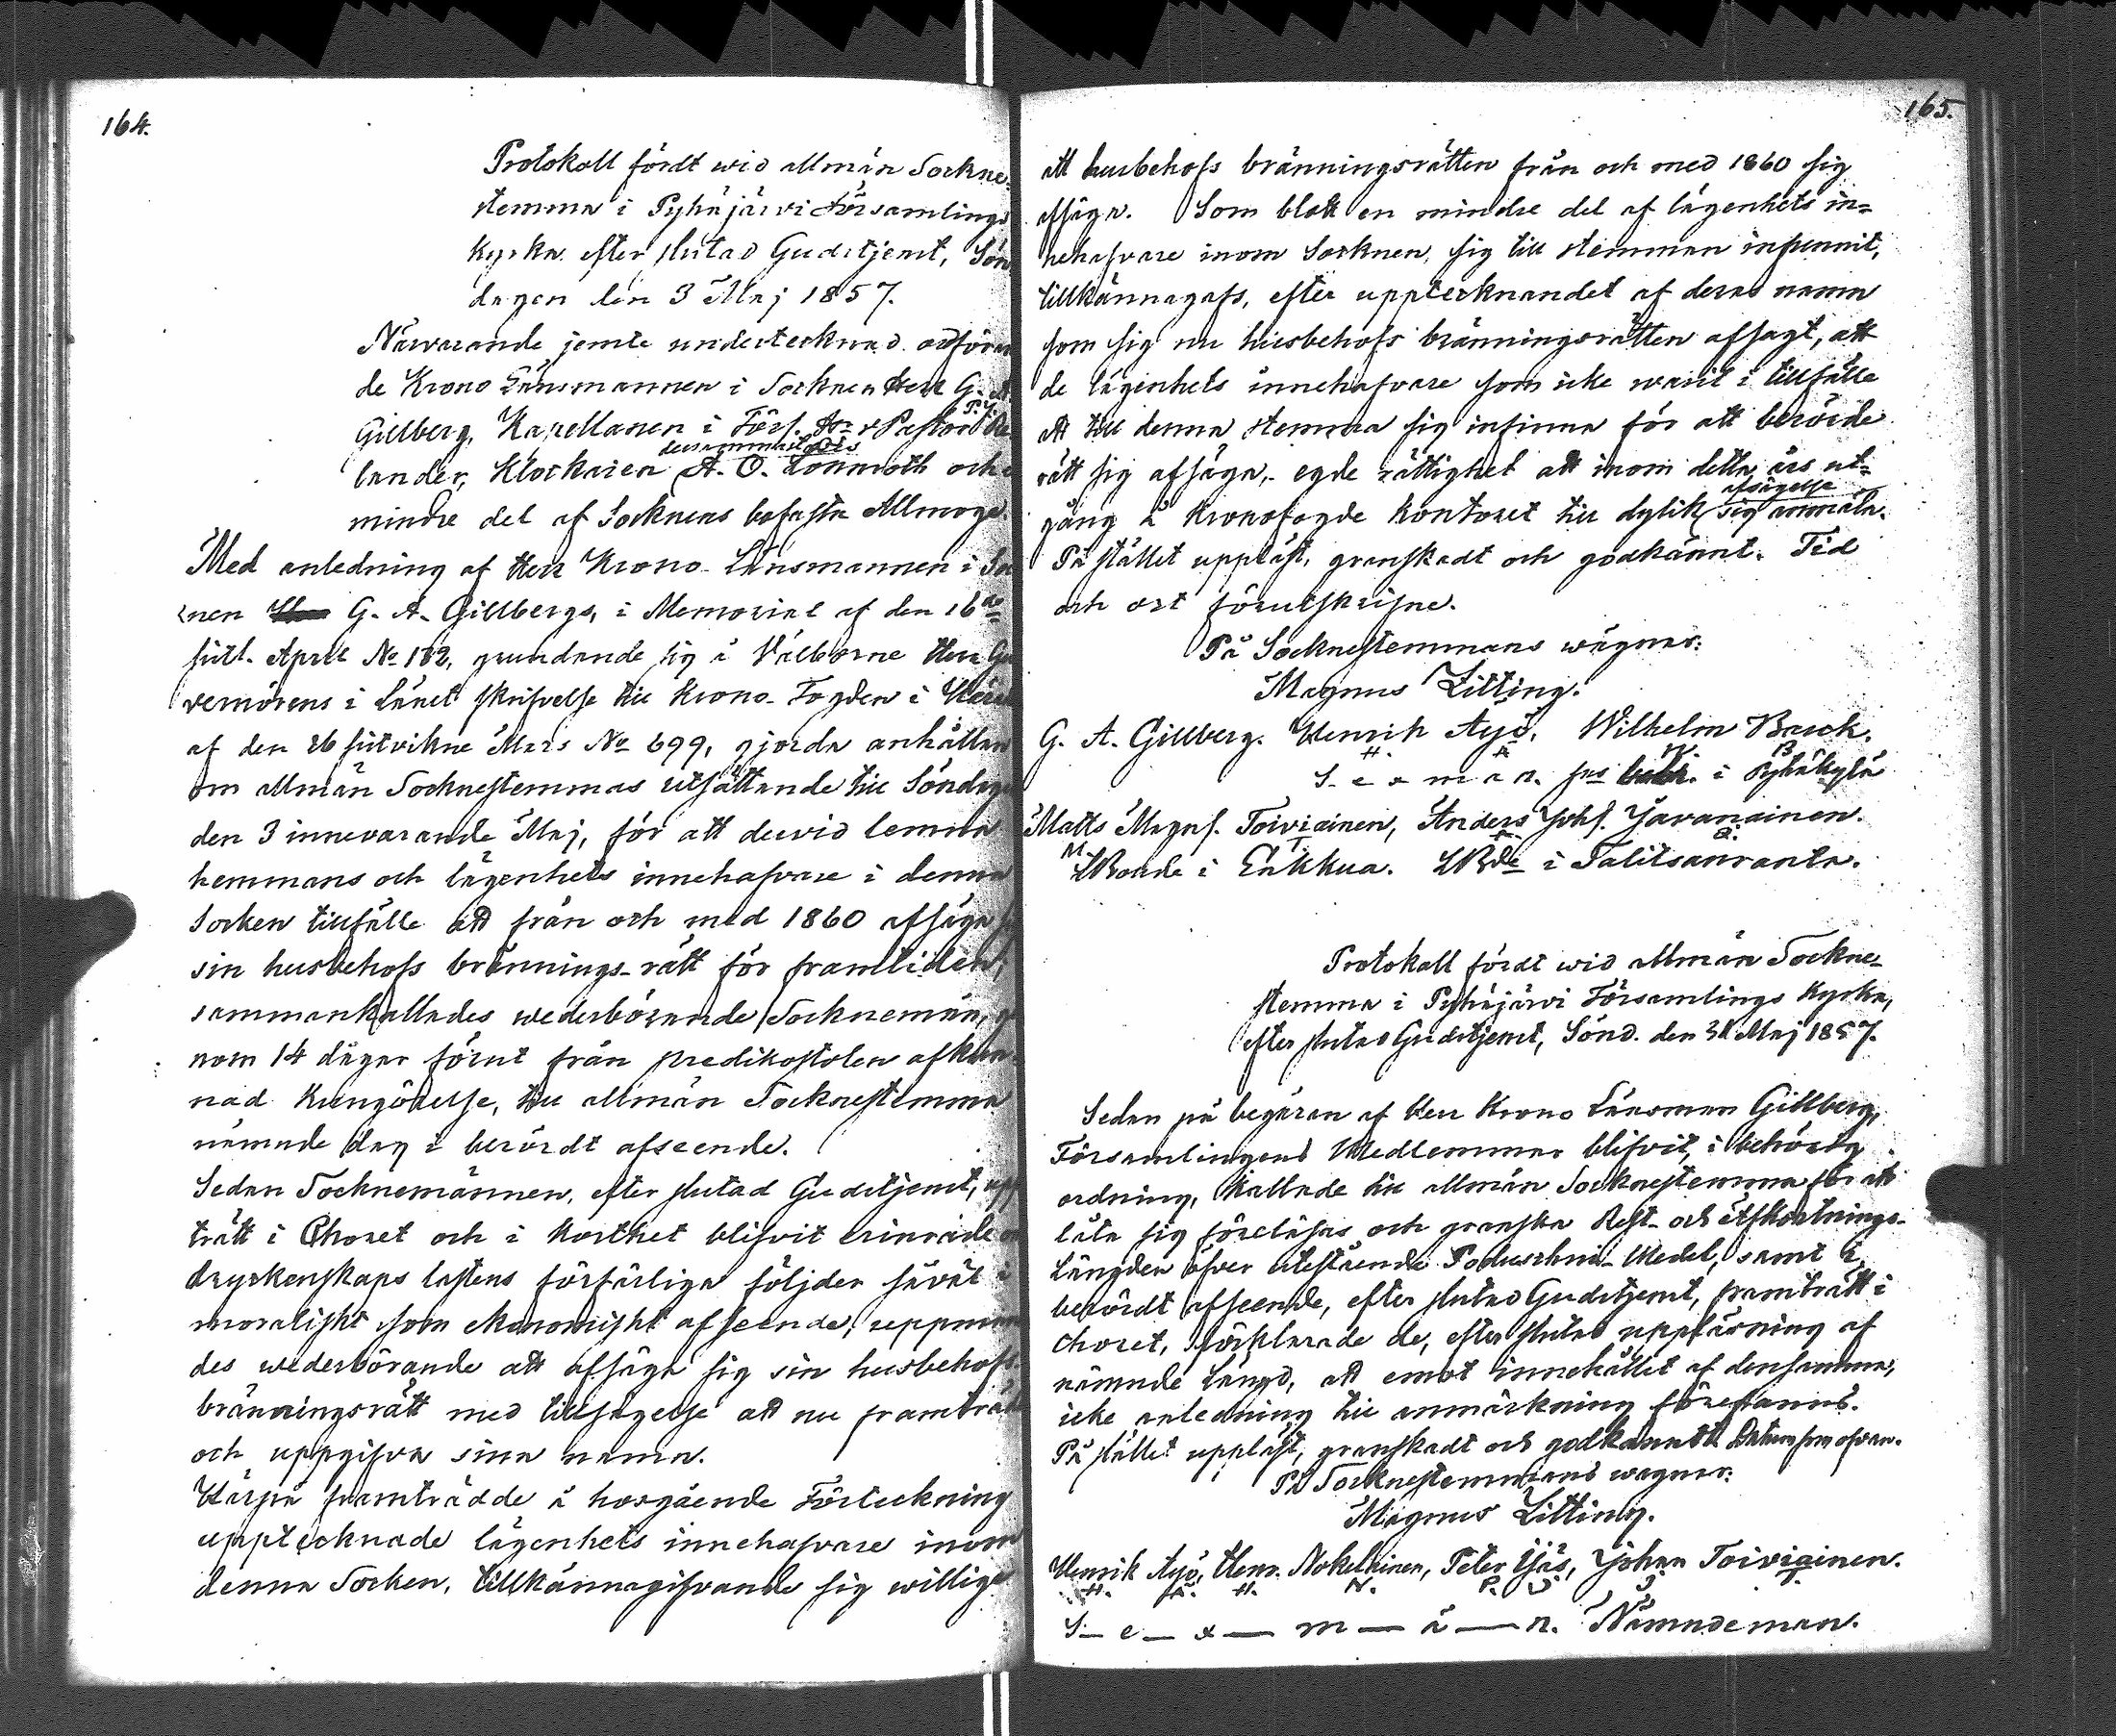 164.
Protokoll fördt wid allmän Sockne-
stemma i Pyhäjärvi Församlings
Kyrka efter slutad Gudstjenst, Sön
dagen den 3 Maj 1857.
Närvarande jemte undertecknad ordföran
de Krono Länsmannen i Socknen Herr G. A.
Gillberg, Kapellanen i Förs.
lander, Klockaren A. O. Lönnroth och
mindre del af Socknens bofasta Allmoge.
Med anledning af Herr Krono Länsmannen i So
nen G. A. Gillbergs, i Memorial af den 16de
sistl. April No 182, grundande sig å Välborne Herr Gu
vernörens i Länet skrifvelse till Krono-Fogden i Härad
af den 26 sistvikne Mars No 699, gjorda anhållan
om allmän Socknestemmas utsättande till Söndage
den 3 innevarande Maj, för att dervid lemna
hemmans och lägenhets innehafvare i denna
Socken tillfälle att från och med 1860 afsäga s
sin husbehofs brännings-rätt för framtiden,
sammankallades wederbörande Socknemän, g
nom 14 dagar förut från predikostolen afkun
nad Kungörelse, till allmän Socknestemma
nämnde dag i berördt afseende.
Sedan Socknemännen, efter slutad Gudstjenst, upp
trätt i Choret och i korthet blifvit erinrade om
dryckenskaps lastens förfärliga följder såväl i
moraliskt som ekonomiskt afseende, uppman
des wederbörande att afsäga sig sin husbehofs
bränningsrätt med tillsägelse att nu framträda
och uppgifva sina namn.
Härpå framträdde å horgående Förteckning
upptecknade lägenhets innehafvare inom
denna Socken, tillkännagifvande sig willige
165.
att husbehofs bränningsrätten från och med 1860 sig
afsäga. Som blott en mindre del af lägenhets in-
nehafvare inom Socknen, sig till stemman infunnit,
tillkännagafs, efter upptecknandet af deras namn
som sig nu husbehofs bränningsrätten afsagt, att
de lägenhets innehafvare som icke warit i tillfälle
att till denna stemma sig infinna för att berörde
rätt sig afsäga, egde rättighet att inom detta års ut-
gång å Kronofogde kontoret till dylik afsägelse sig anmäla.
På stället uppläst, granskadt och godkännt. Tid
och ort förutskrifne.
På Socknestemmans wägnar:
Magnus Litting.
G. A. Gillberg. Henrik Äyö, Wilhelm Barck.
S. e x m ä n. i Pyhäkylä
Matts Magns. Toiviainen, Anders Johs. Javanainen.
LBonde i Enkkua. LBde i Talitsanranta.
Protokoll fördt wid allmän Sockne-
stemma i Pyhäjärvi Församlings Kyrka,
efter slutad Gudstjenst, Sönd. den 31 Maj 1857.
Sedan på begäran af Herr Krono Länsman Gillberg,
Församlingens Medlemmar blifvit, i behörig
ordning, kallade till allmän Socknestemma för att
låta sig föreläsas och granska Rest- och afskortnings-
Längden öfver utestående Medel, samt i
berördt afseende, efter slutad Gudstjenst, framträtt i
choret, förklarade de, efter slutad uppläsning af
nämnde Längd, att emot innehållet af densamma,
icke anledning till anmärkning förefanns.
På stället uppläst, granskadt och godkännt. Datum som ofvan.
På Socknestemmans wägnar:
Magnus Litting.
Henrik Äyö, Henr. Nokelainen, Peter Ijäs, Johan Toiviainen.
S — e — x — m — ä — n. Nämndeman.